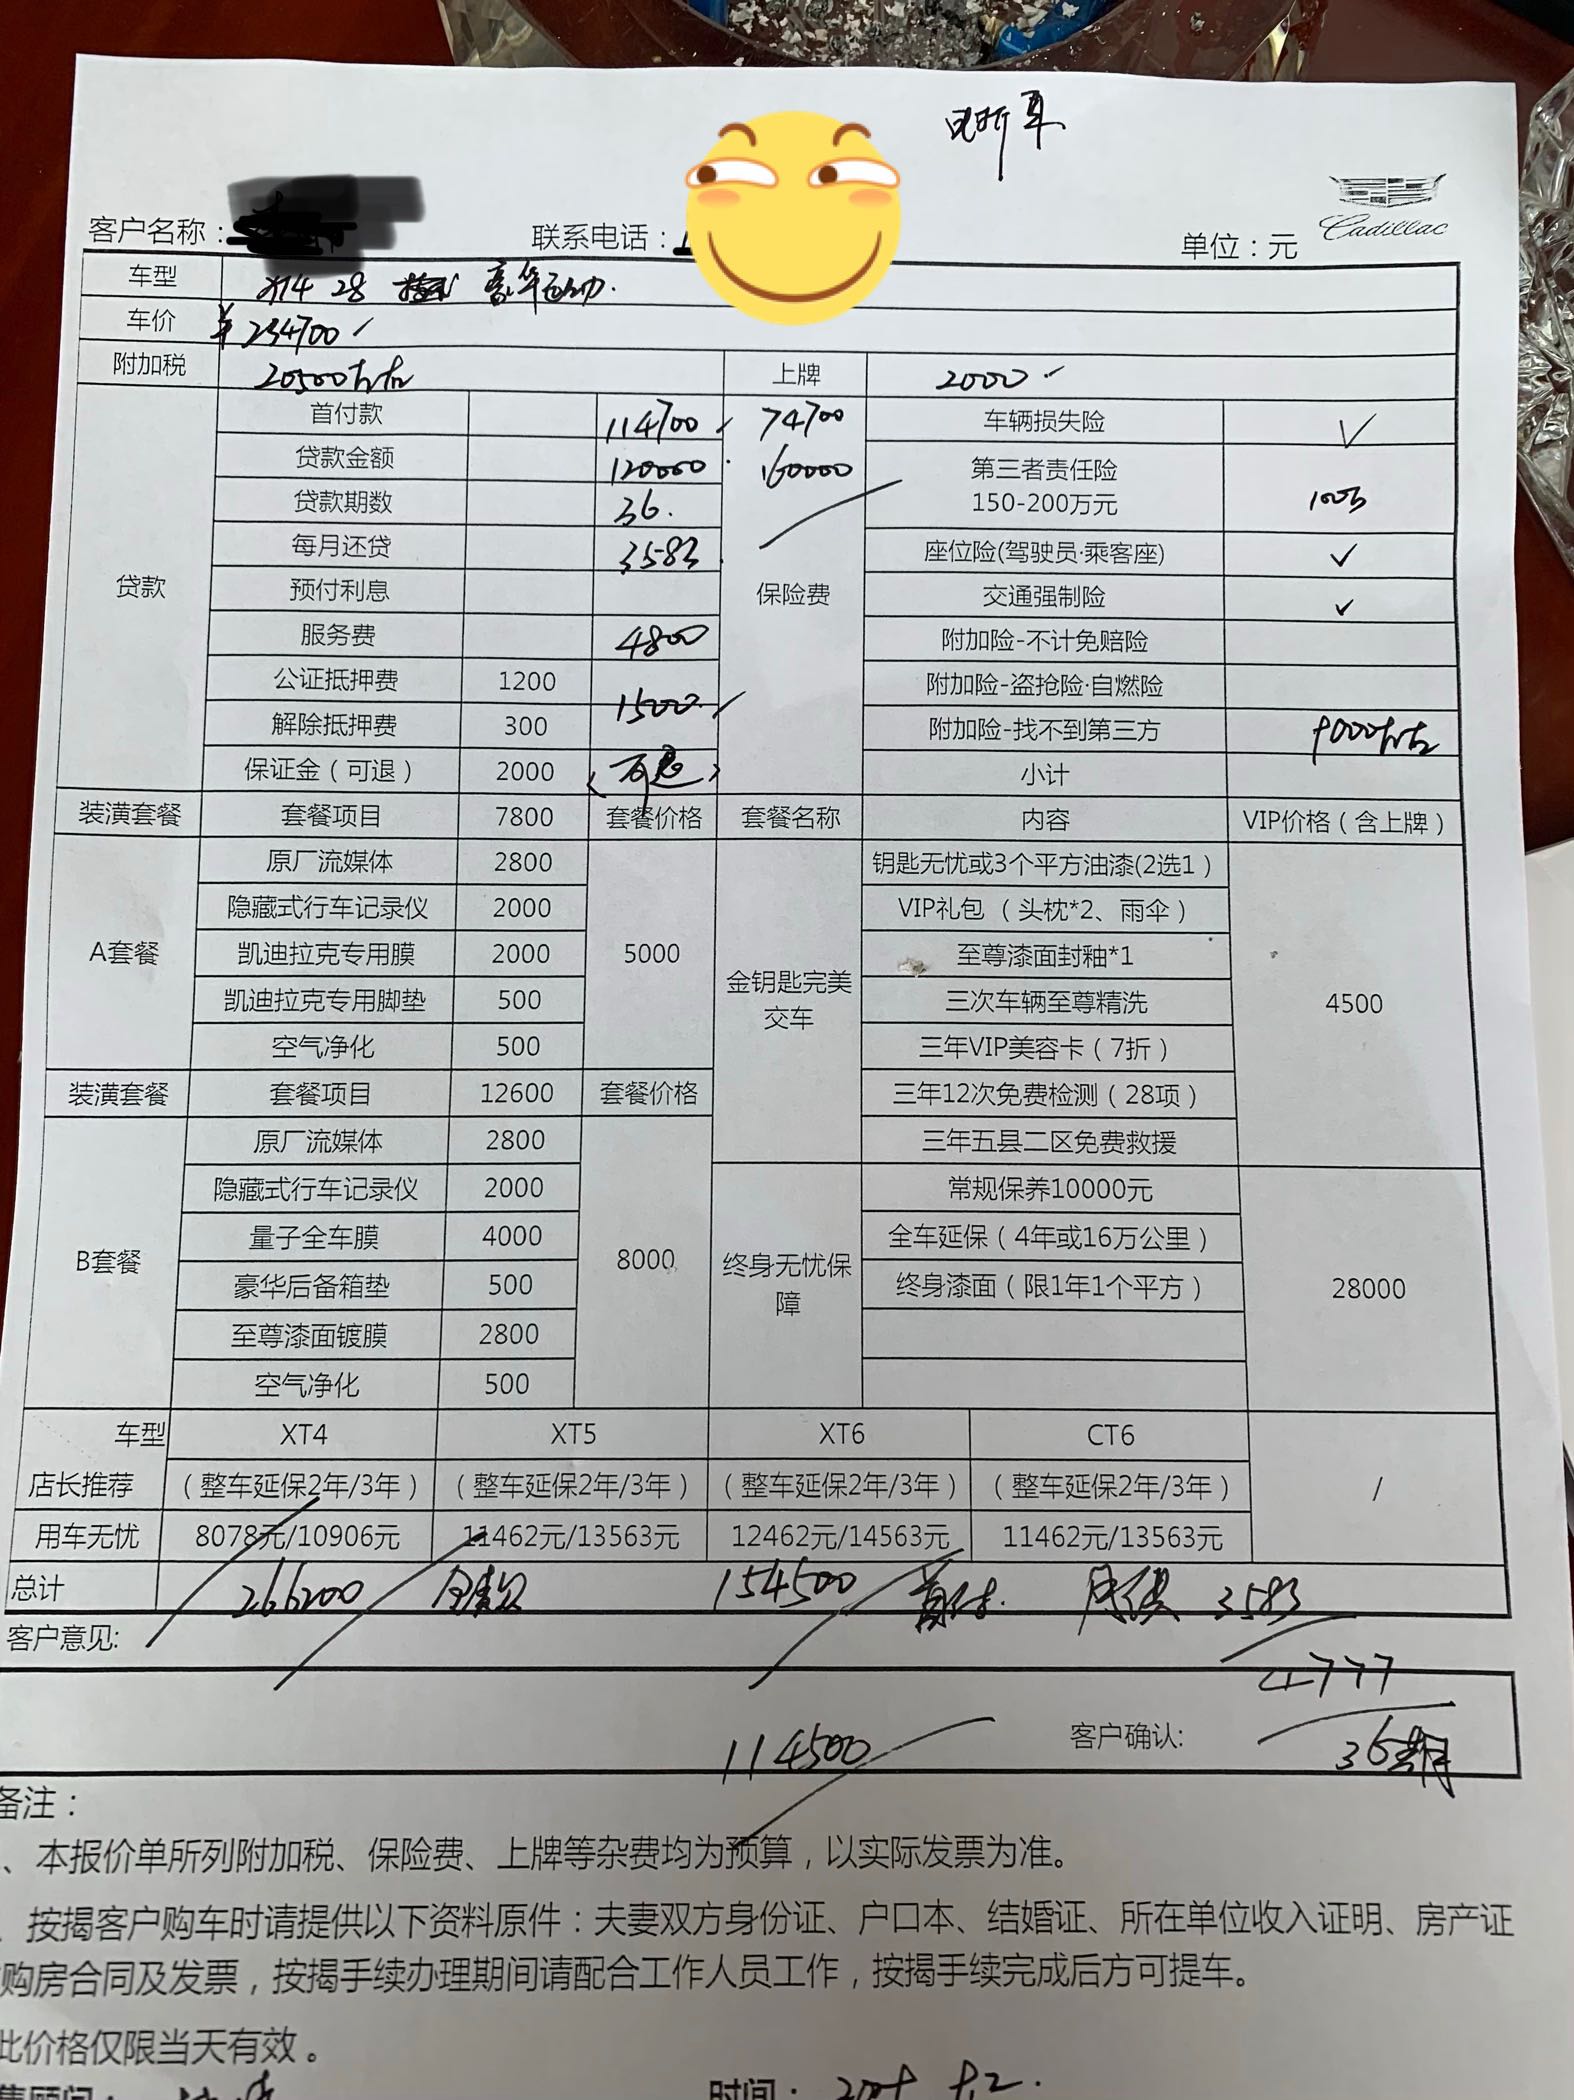 Cadillac
客户名称：
联系电话：
单位：元
车型 XT4 28 豪华运动
车价 ¥234700
附加税 20500左右 上牌 2000
贷款 首付款 114700 74700
贷款金额 120000 160000
贷款期数 36
每月还贷 3583
预付利息
服务费 4800
公证抵押费 1200
解除抵押费 300 1500
保证金（可退） 2000 （可退）
保险费 车辆损失险 ✓
第三者责任险
150-200万元 100万
座位险(驾驶员·乘客座) ✓
交通强制险 ✓
附加险-不计免赔险
附加险-盗抢险·自燃险
附加险-找不到第三方 9000左右
小计
装潢套餐 套餐项目 7800 套餐价格 套餐名称 内容 VIP价格（含上牌）
A套餐 原厂流媒体 2800
隐藏式行车记录仪 2000
凯迪拉克专用膜 2000
凯迪拉克专用脚垫 500
空气净化 500
5000
金钥匙完美
交车
钥匙无忧或3个平方油漆(2选1）
VIP礼包 （头枕*2、雨伞）
至尊漆面封釉*1
三次车辆至尊精洗
三年VIP美容卡（7折）
三年12次免费检测（28项）
三年五县二区免费救援
4500
装潢套餐 套餐项目 12600 套餐价格
B套餐 原厂流媒体 2800
隐藏式行车记录仪 2000
量子全车膜 4000
豪华后备箱垫 500
至尊漆面镀膜 2800
空气净化 500
8000
终身无忧保
障
常规保养10000元
全车延保（4年或16万公里）
终身漆面（限1年1个平方）
28000
车型 XT4 XT5 XT6 CT6
店长推荐 （整车延保2年/3年） （整车延保2年/3年） （整车延保2年/3年） （整车延保2年/3年） /
用车无忧 8078元/10906元 11462元/13563元 12462元/14563元 11462元/13563元
总计 266200 全款 154500 首付 月供 3583
客户意见:
4777
114500 客户确认: 36个月
备注：
、本报价单所列附加税、保险费、上牌等杂费均为预算，以实际发票为准。
、按揭客户购车时请提供以下资料原件：夫妻双方身份证、户口本、结婚证、所在单位收入证明、房产证
购房合同及发票，按揭手续办理期间请配合工作人员工作，按揭手续完成后方可提车。
此价格仅限当天有效。
售顾问：
时间：